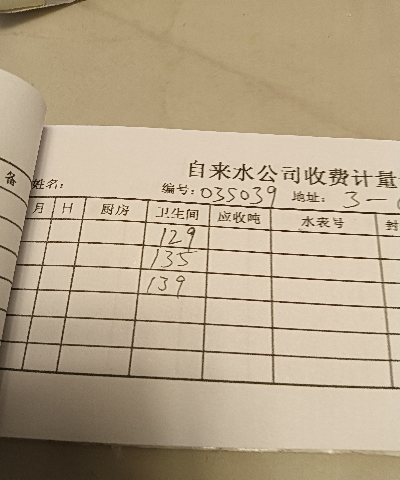 自来水公司收费计量
备 姓名: 编号: 035039 地址: 3-
月 日 厨房 卫生间 应收吨 水表号 封
129
135
139